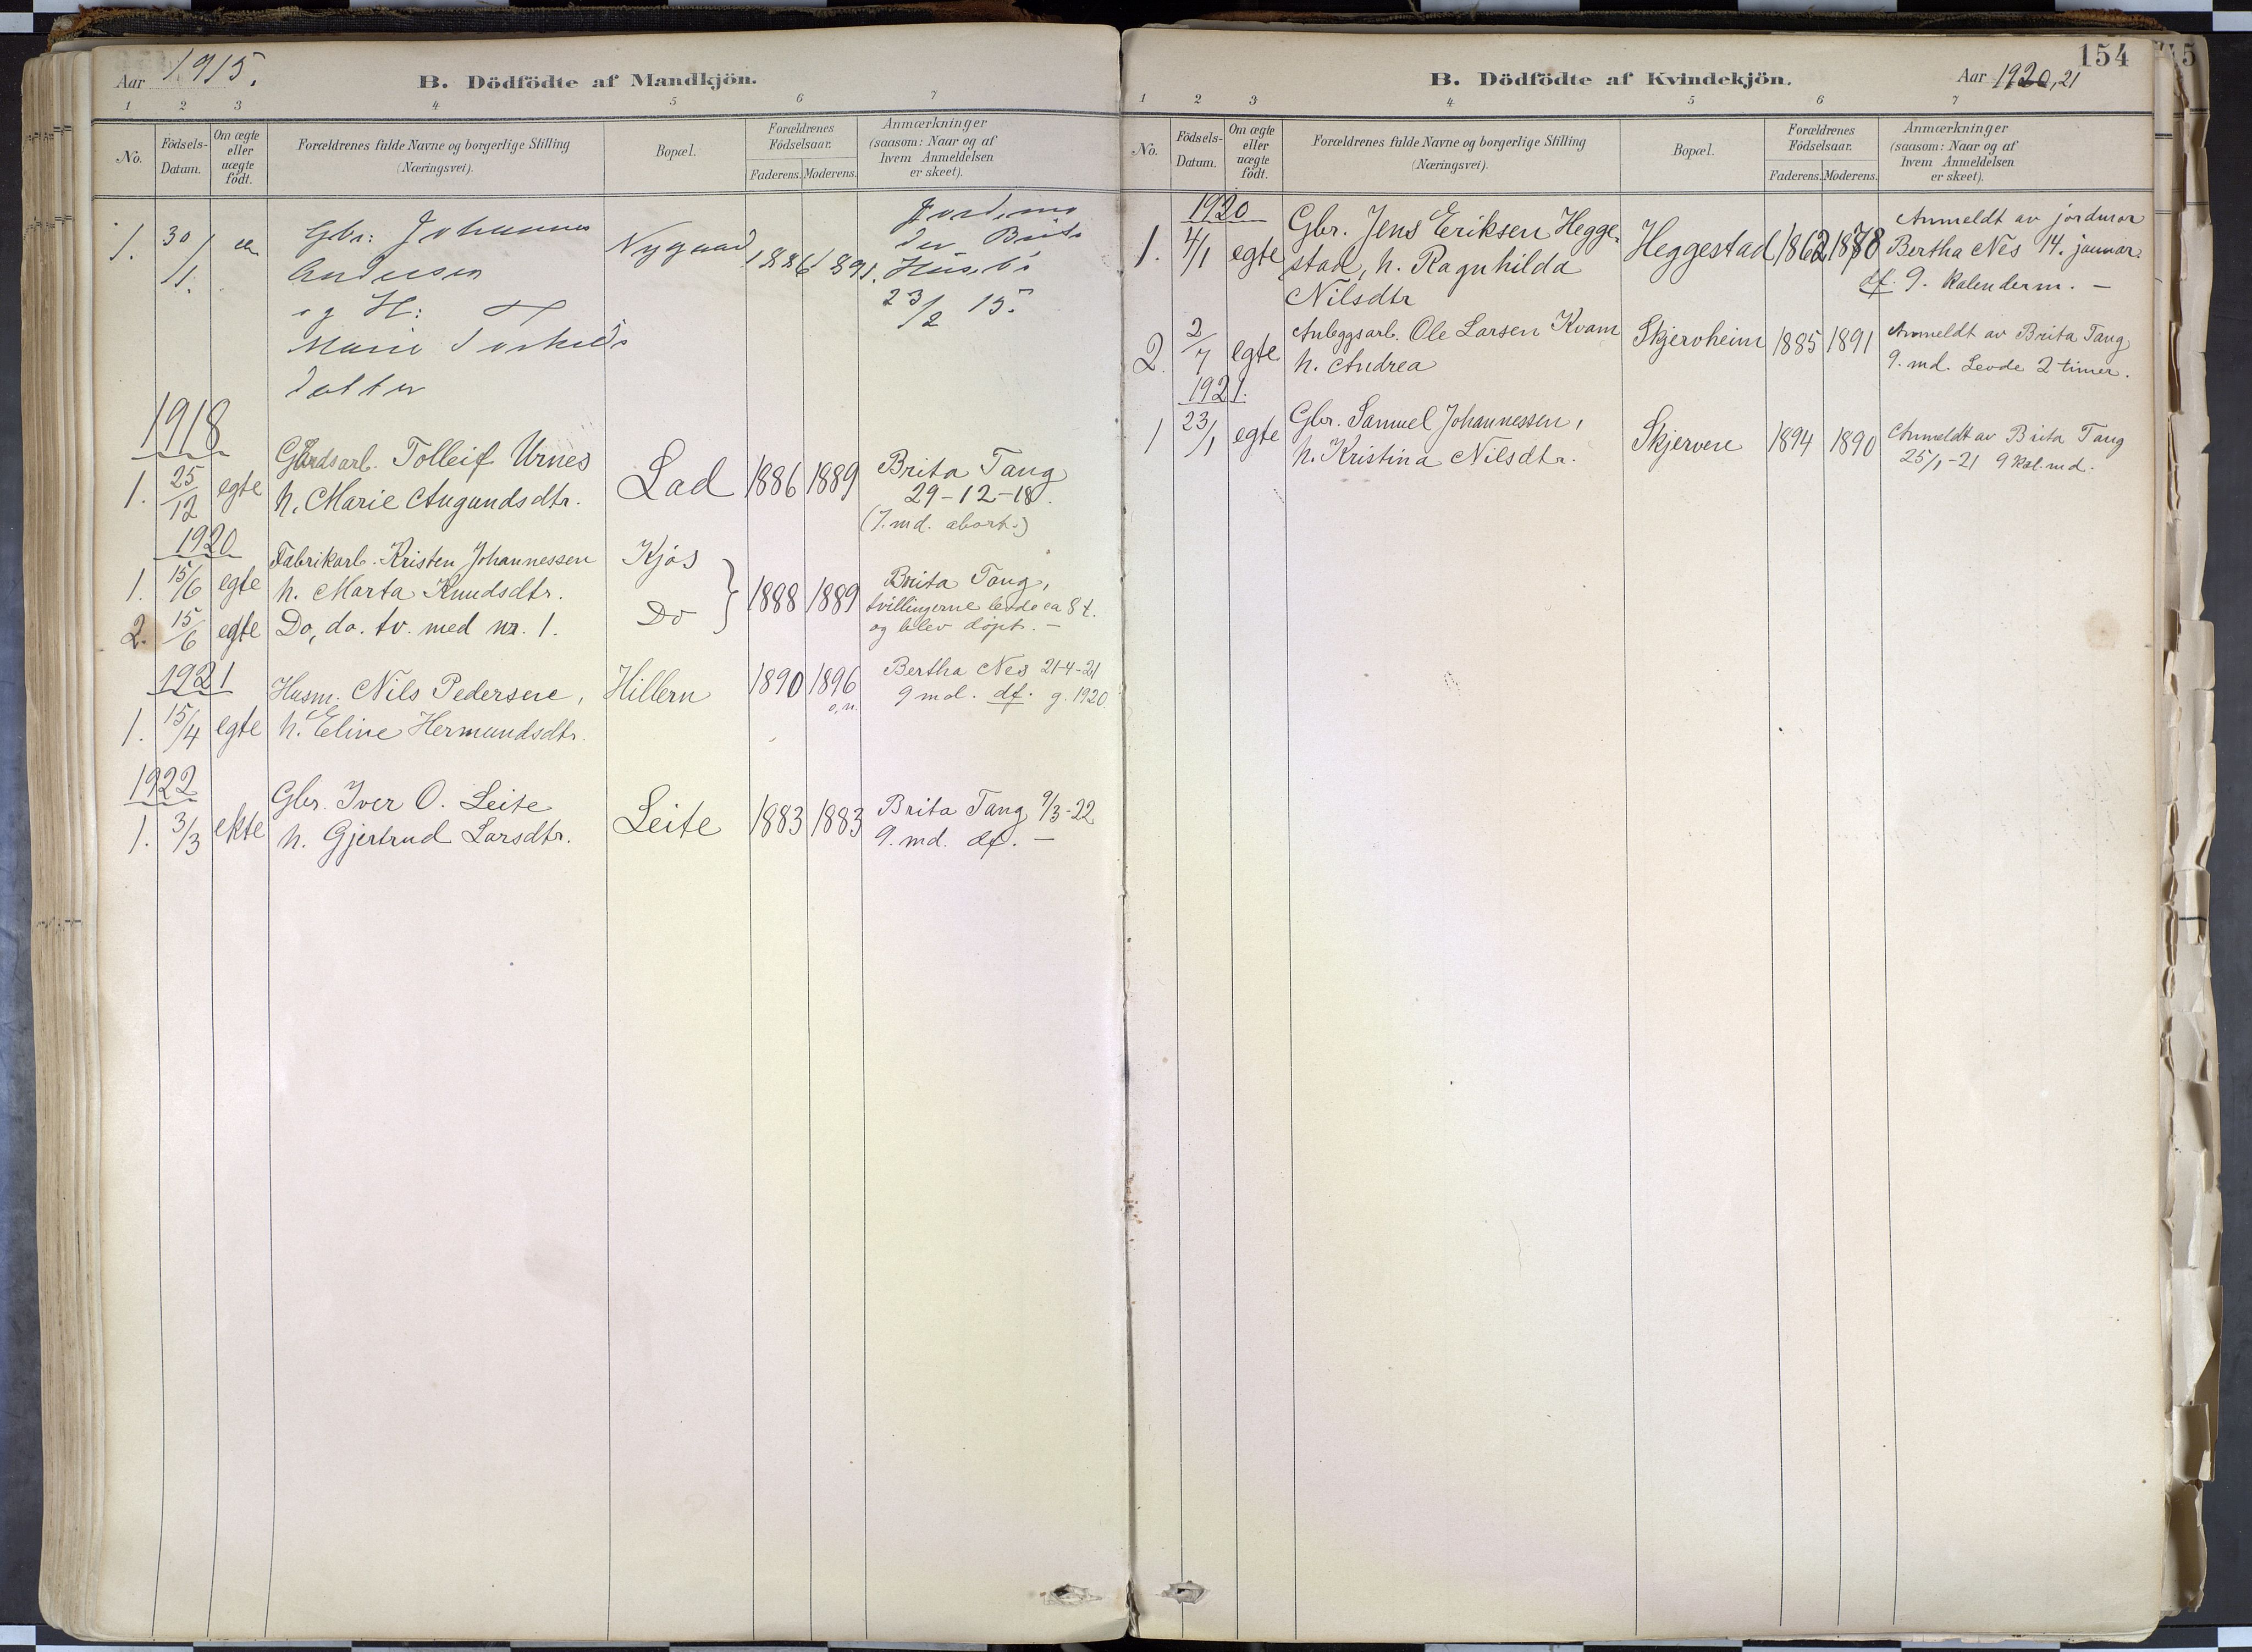 Aar 1915.
B. Dödfödte af Mandkjön.
1 2 3 4 5 6 7
No.
Födsels-
Datum.
Om ægte
eller
uægte
födt.
Forældrenes fulde Navne og borgerlige Stilling
(Næringsvei).
Bopæl.
Forældrenes
Födselsaar.
Faderens. Moderens.
Anmærkninger
(saasom: Naar og af
hvem Anmeldelsen
er skeet).
1. 30/1. Gbr: Johannes Nygaard 1886 1891.
Andersen
og H:
Marie
datter
Jordemo
der Brita
23/2 15.
1918
Gårdsarb. Tolleif Urnes
1. 25/12 egte h. Marie Augundsdtr. Lad 1886 1889 Brita Tang
29-12-18.
(7. md. abort.)
1920
Fabrikarb. Kristen Johannessen Kjøs
1. 15/6 egte h. Marta Knudsdtr. 1888 1889 Brita Tang,
tvillingerne levde ca 8 t.
2. 15/6 egte Do, do. tv. med nr. 1. Do og blev døpt. —
1921
Husm. Nils Pedersen, Hillern 1890 1896 Bertha Nes 21-4-21
9 md. df. g. 1920.
1. 15/4 egte h. Eline Hermundsdtr.
1922
Gbr. Iver O. Leite
1. 3/3 ekte h. Gjertrud Larsdtr. Leite 1883 1883 Brita Tang 9/3-22
9. md. df. —
154
B. Dödfödte af Kvindekjön.
Aar 1920, 21
1 2 3 4 5 6 7
No.
Födsels-
Datum.
Om ægte
eller
uægte
födt.
Forældrenes fulde Navne og borgerlige Stilling
(Næringsvei).
Bopæl.
Forældrenes
Födselsaar.
Faderens. Moderens.
Anmærkninger
(saasom: Naar og af
hvem Anmeldelsen
er skeet).
1920
1. 4/1 egte Gbr. Jens Eriksen Hegge-
stad, h. Ragnhilda
Nilsdtr
Heggestad 1862 1878
Anmeldt av jordmor
Bertha Nes 14. januar.
df. 9. kalenderm. —
2. 2/7 egte Anleggsarb. Ole Larsen Kvam
h. Andrea
Skjervheim 1885 1891
Anmeldt av Brita Tang
9. md. Levde 2 timer.
1921.
1 23/1 egte Gbr. Samuel Johannessen,
h. Kristina Nilsdtr.
Skjerven 1894 1890
Anmeldt av Brita Tang
25/1-21 9 kal. md.